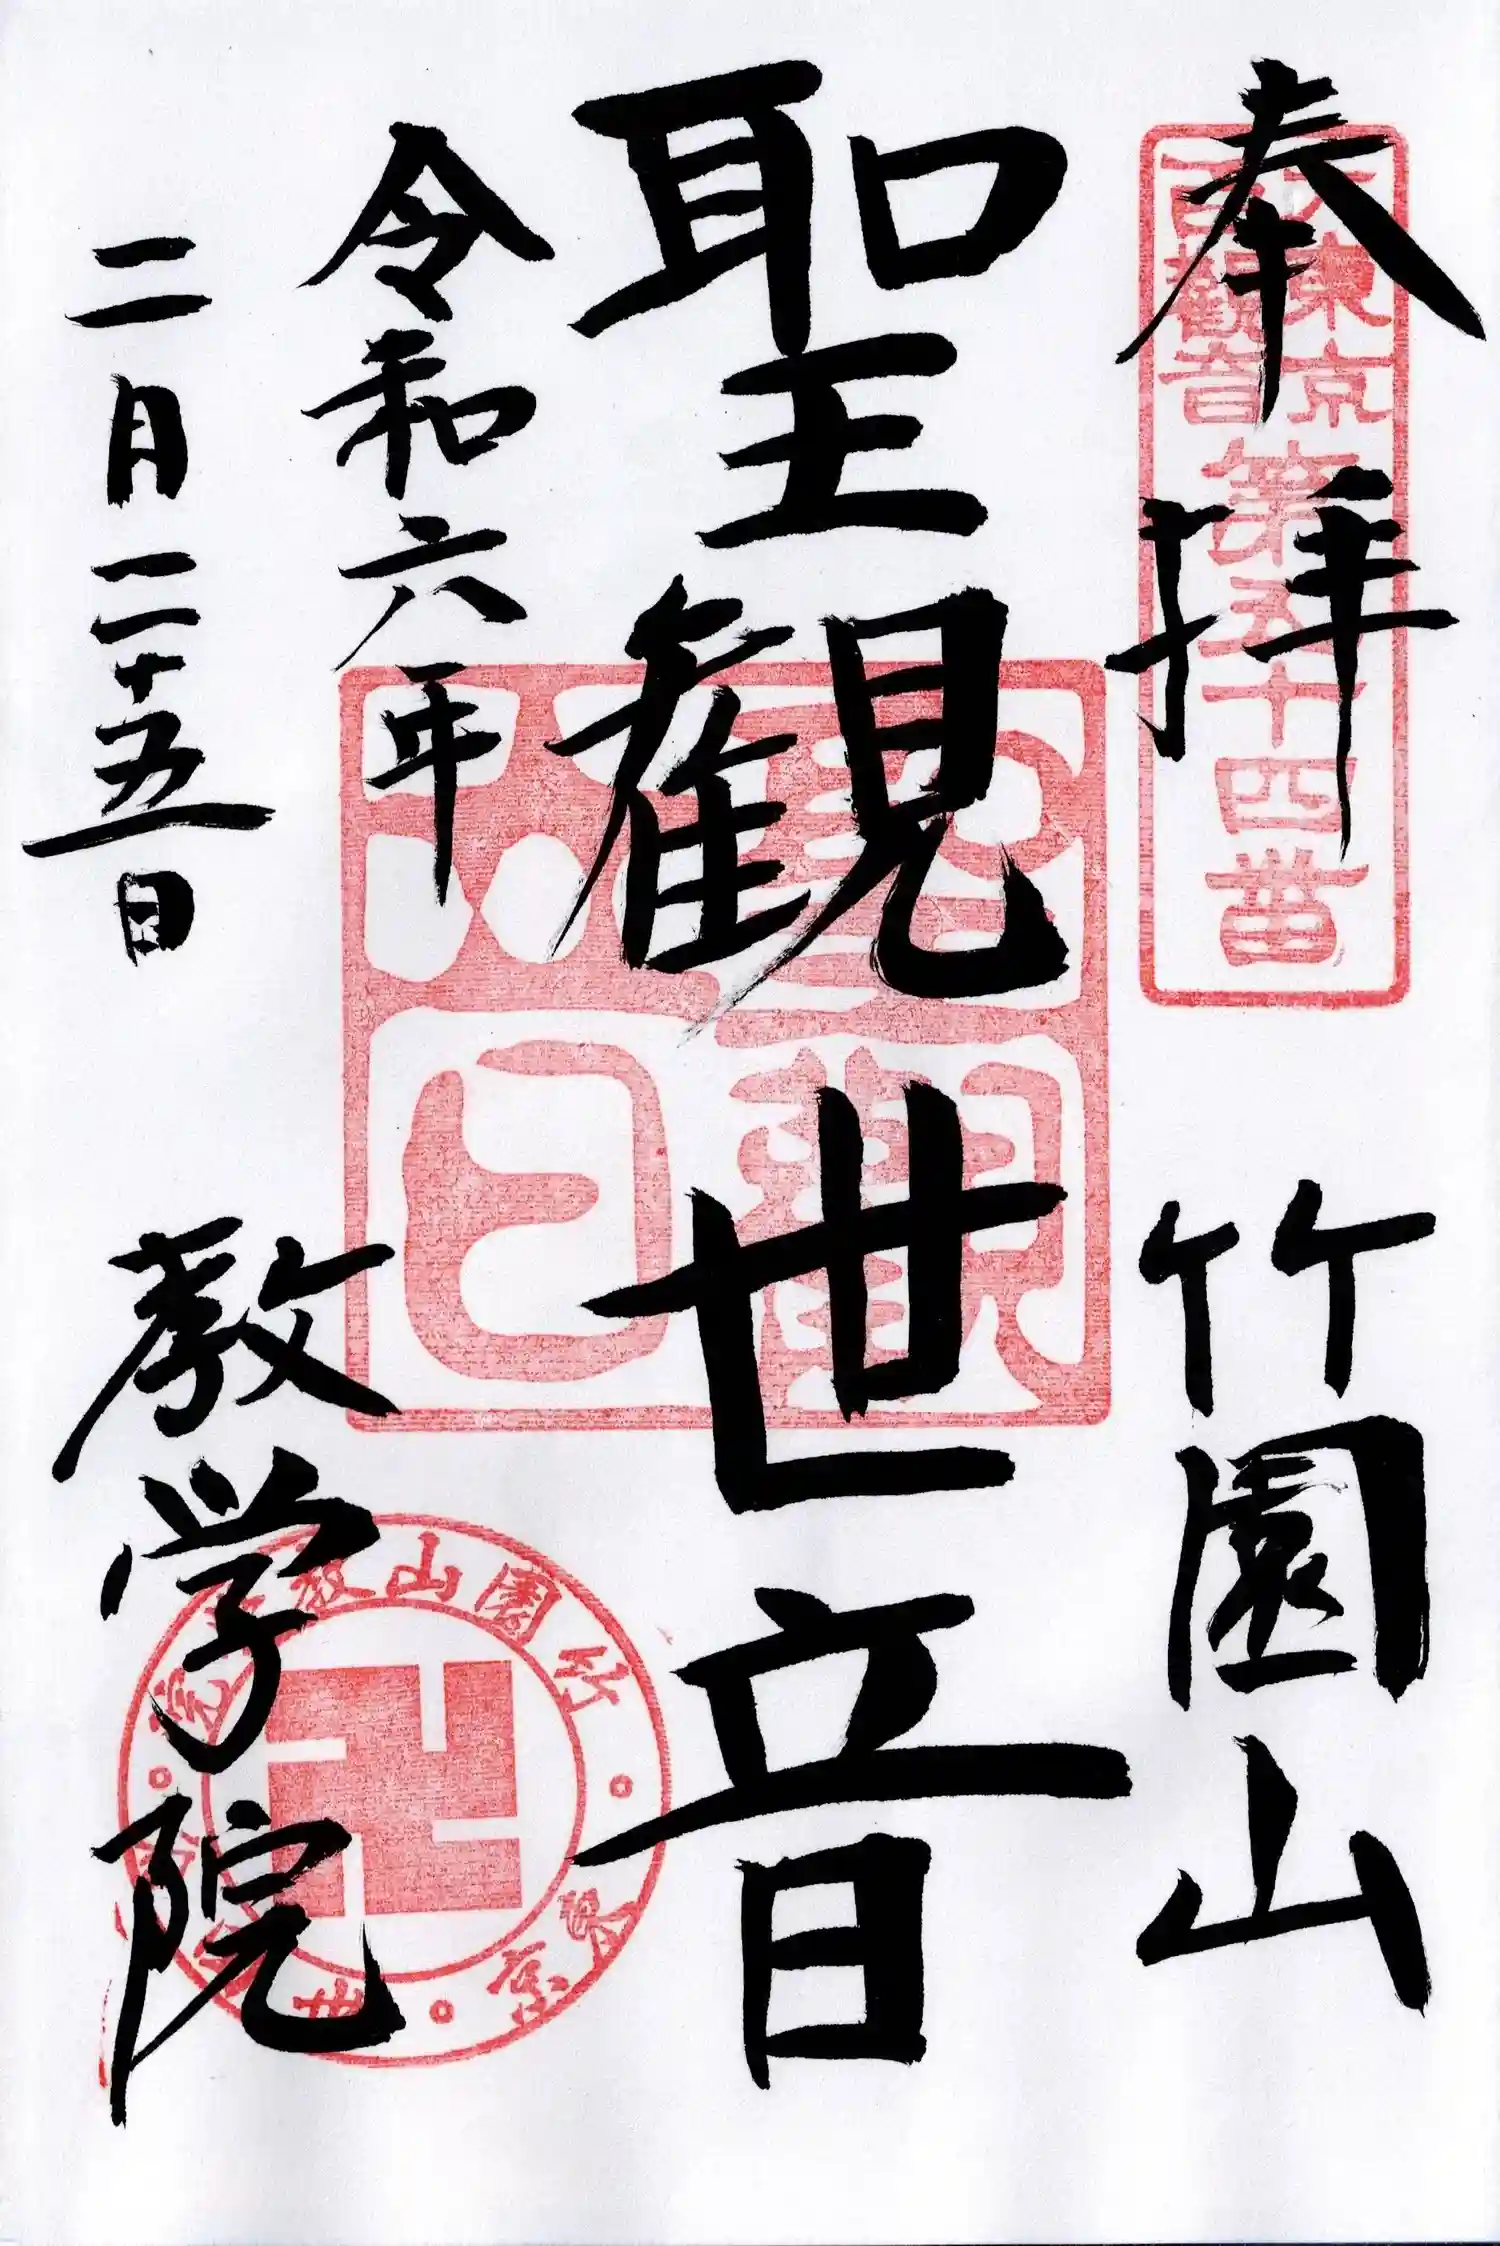 奉拝
竹園山
聖観世音
令和六年
二月二十五日
教学院
東京
百観音
第五十四番
竹園山教
東京
世